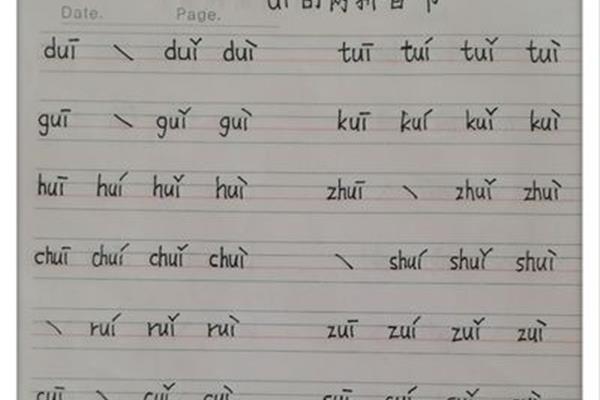 Date. Page.
ui的两拼音节
duī \ duǐ duì tuī tuí tuǐ tuì
guī \ guǐ guì kuī kuí kuǐ kuì
huī huí huǐ huì zhuī \ zhuǐ zhuì
chuī chuí chuǐ chuì \ shuí shuǐ shuì
\ ruí ruǐ ruì zuī zuí zuǐ zuì